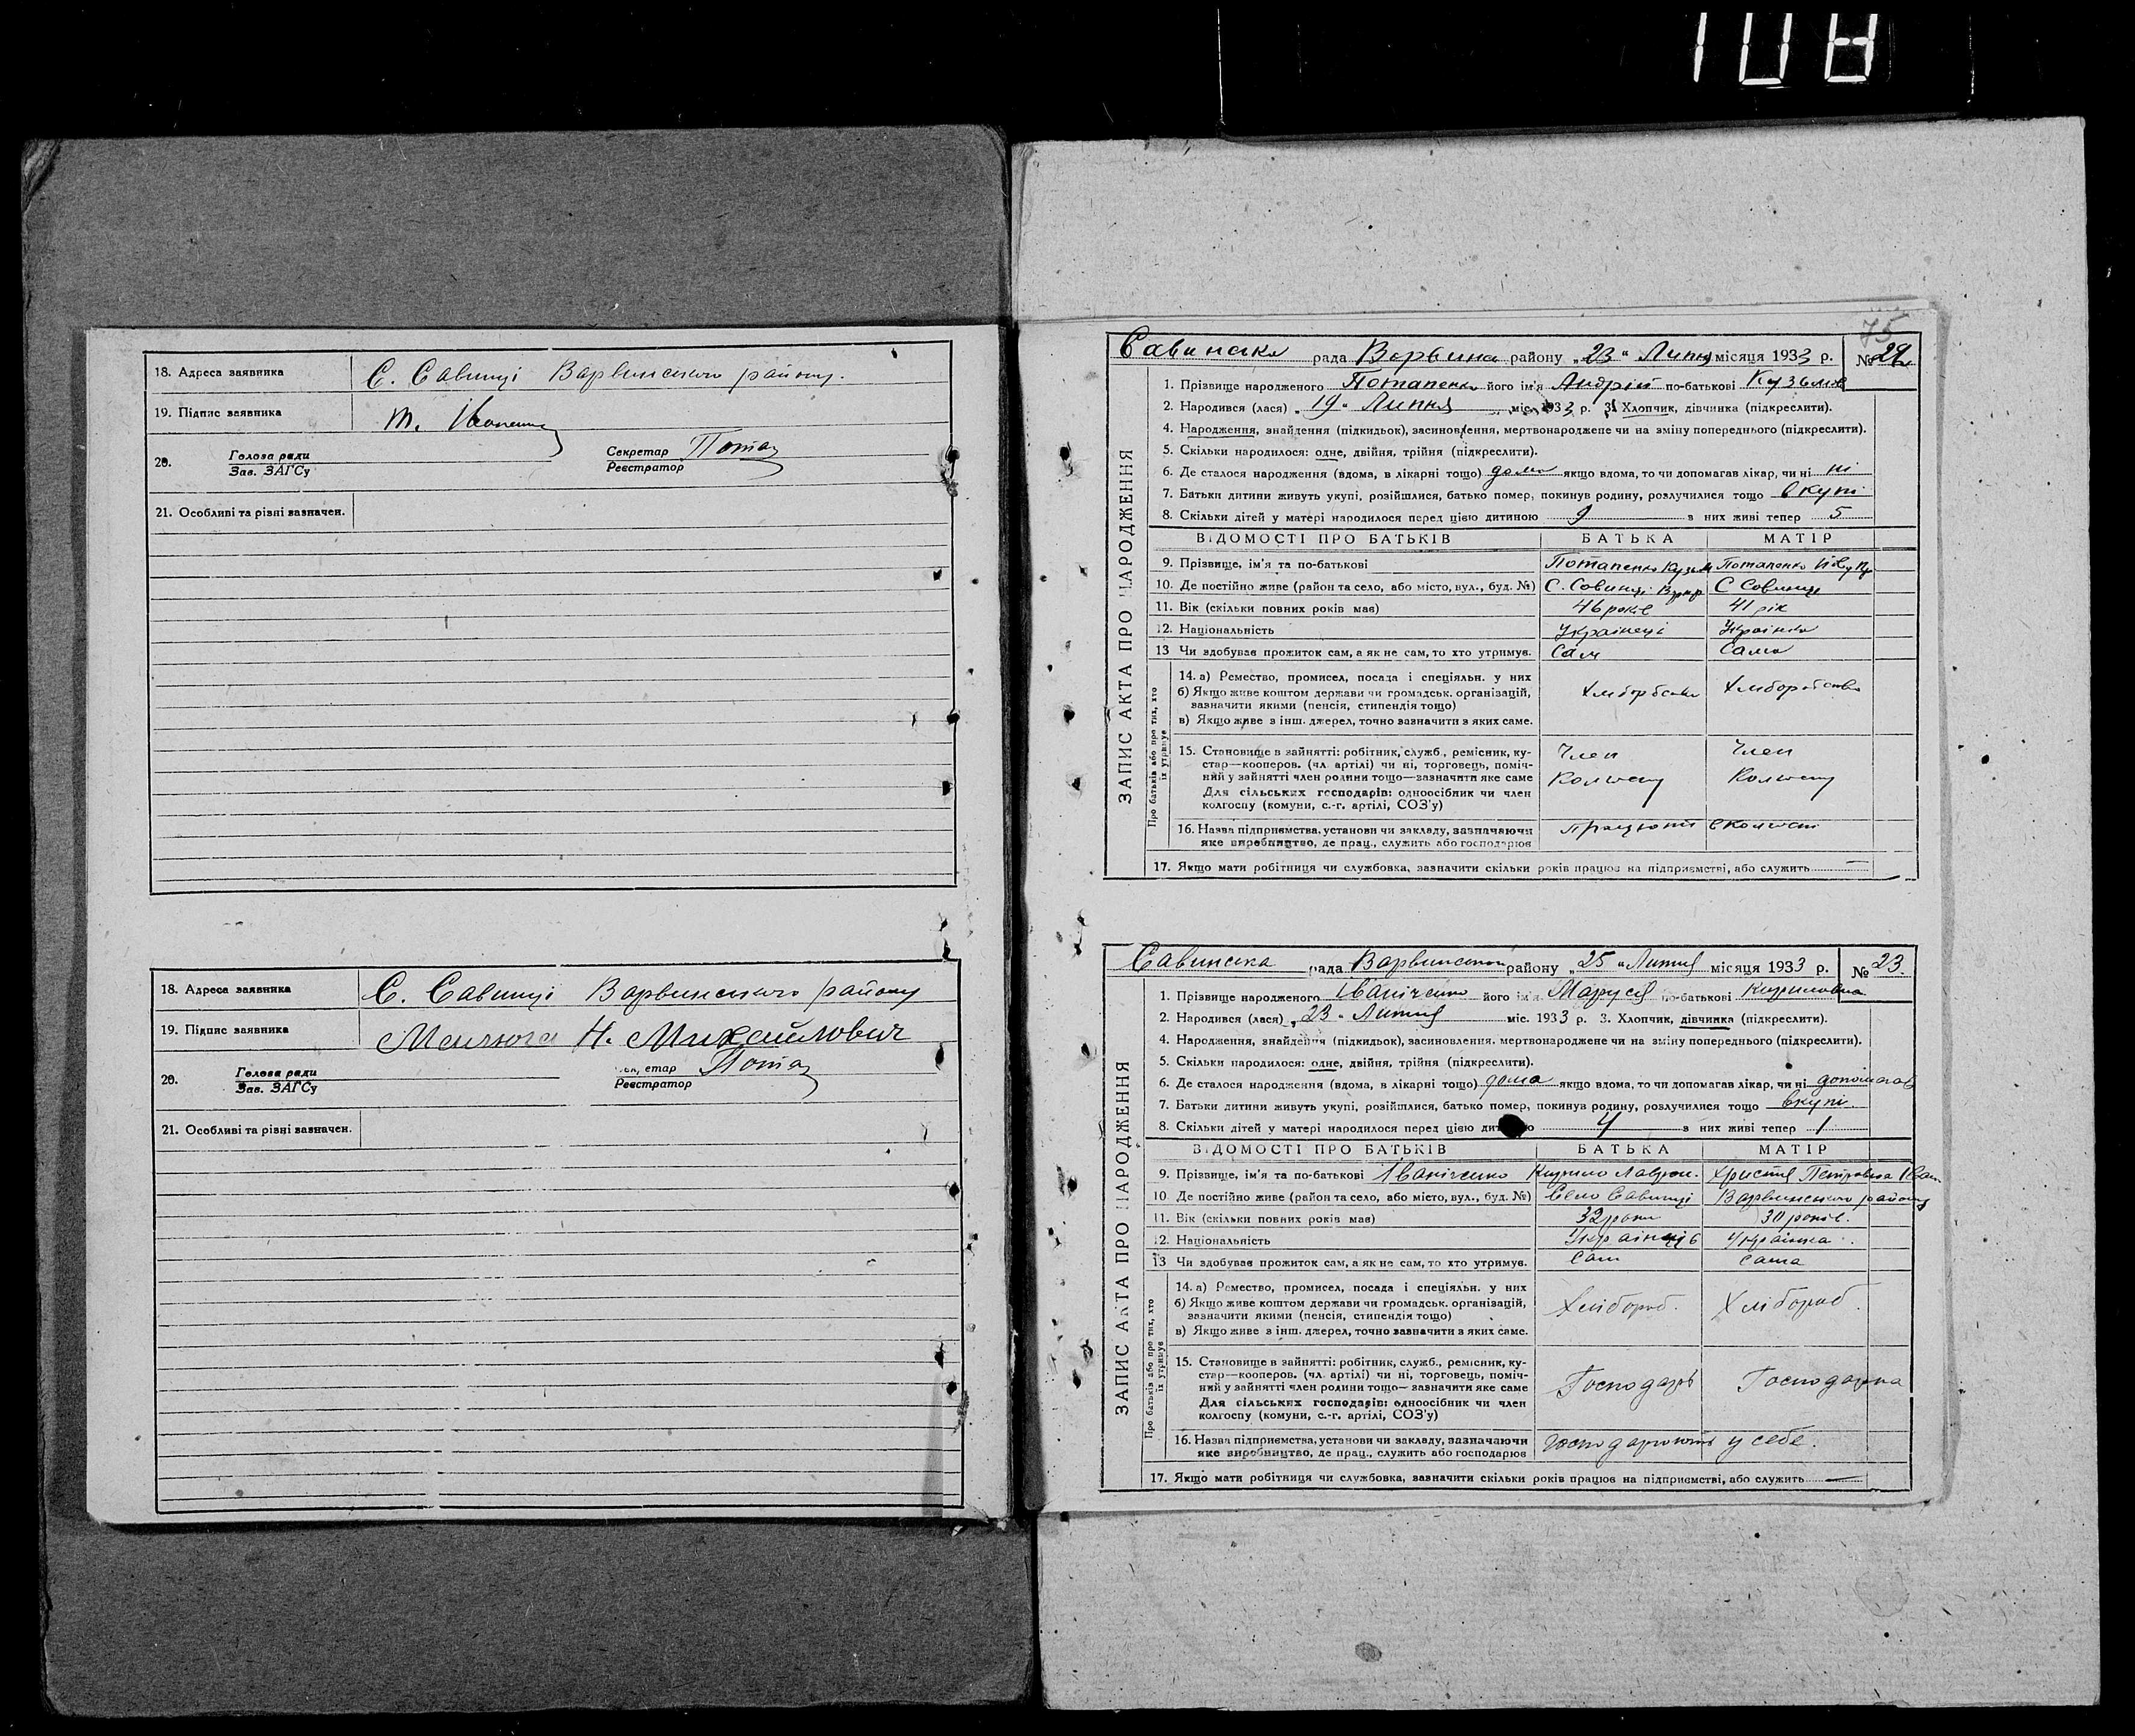 108
18. Адреса заявника С. Савинці Варвинського району.
19. Підпис заявника
20. Голова ради Секретар Потап
Зав. ЗАГСу Реєстратор
21. Особливі та різні зазначен.
18. Адреса заявника С. Савинці Варвинського району
19. Підпис заявника Н. Михайлович
20. Голова ради Потап
Зав. ЗАГСу Реєстратор
21. Особливі та різні зазначен.
75
Савинська рада Варвинс району „23“ Липня місяця 1933 р. №
ЗАПИС АКТА ПРО НАРОДЖЕННЯ
1. Прізвище народженого Потапенко його ім'я Андрій по-батькові Кузьмов
2. Народився (лася) „19“ Липня міс. 1933 р. 3. Хлопчик, дівчинка (підкреслити).
4. Народження, знайдення (підкидьок), засиновлення, мертвонароджене чи на зміну попереднього (підкреслити).
5. Скільки народилося: одне, двійня, трійня (підкреслити).
6. Де сталося народження (вдома, в лікарні тощо) дома якщо вдома, то чи допомагав лікар, чи ні ні
7. Батьки дитини живуть укупі, розійшлися, батько помер, покинув родину, розлучилися тощо вкупі
8. Скільки дітей у матері народилося перед цією дитиною 9 з них живі тепер 5
ВІДОМОСТІ ПРО БАТЬКІВ БАТЬКА МАТІР
9. Прізвище, ім'я та по-батькові Потапенко Кузьм Потапенко
10. Де постійно живе (район та село, або місто, вул., буд. №) С. Савинці С Савинці
11. Вік (скільки повних років має) 46 років 41 рік
12. Національність Українець Українка
13 Чи здобуває прожиток сам, а як не сам, то хто утримує. Сам Сама
Про батьків або про тих, хто їх утримує
14. а) Ремество, промисел, посада і спеціяльн. у них
б) Якщо живе коштом держави чи громадськ. організацій,
зазначити якими (пенсія, стипендія тощо)
в) Якщо живе з інш. джерел, точно зазначити з яких саме.
Хліборобство Хліборобство
15. Становище в зайнятті: робітник, служб., ремісник, ку-
стар—кооперов. (чл. артілі) чи ні, торговець, поміч-
ний у зайнятті член родини тощо—зазначити яке саме
Для сільських господарів: одноосібник чи член
колгоспу (комуни, с.-г. артілі, СОЗ'у)
Член Член
Колгоспу Колгоспу
16. Назва підприємства, установи чи закладу, зазначаючи
яке виробництво, де прац., служить або господарює
Працюють в колгоспі
17. Якщо мати робітниця чи службовка, зазначити скільки років працює на підприємстві, або служить —
Савинська рада Варвинського району „25“ Липня місяця 1933 р. № 23
ЗАПИС АКТА ПРО НАРОДЖЕННЯ
1. Прізвище народженого Іваніченко його ім'я Маруся по-батькові Кириловна
2. Народився (лася) „23“ Липня міс. 1933 р. 3. Хлопчик, дівчинка (підкреслити).
4. Народження, знайдення (підкидьок), засиновлення, мертвонароджене чи на зміну попереднього (підкреслити).
5. Скільки народилося: одне, двійня, трійня (підкреслити).
6. Де сталося народження (вдома, в лікарні тощо) дома якщо вдома, то чи допомагав лікар, чи ні допомагав
7. Батьки дитини живуть укупі, розійшлися, батько помер, покинув родину, розлучилися тощо вкупі
8. Скільки дітей у матері народилося перед цією дитиною 4 з них живі тепер 1
ВІДОМОСТІ ПРО БАТЬКІВ БАТЬКА МАТІР
9. Прізвище, ім'я та по-батькові Іваніченко Кирило Лаврін. Христя Петровна Іван
10 Де постійно живе (район та село, або місто, вул., буд. №) Село Савинці Варвинського району
11. Вік (скільки повних років має) 32 роки 30 років.
12. Національність Українців Українка.
13 Чи здобуває прожиток сам, а як не сам, то хто утримує. Сам Сама
Про батьків або про тих, хто їх утримує
14. а) Ремество, промисел, посада і спеціяльн. у них
б) Якщо живе коштом держави чи громадськ. організацій,
зазначити якими (пенсія, стипендія тощо)
в) Якщо живе з інш. джерел, точно зазначити з яких саме.
Хлібороб. Хлібороб.
15. Становище в зайнятті: робітник, служб., ремісник, ку-
стар—кооперов. (чл. артілі) чи ні, торговець, поміч-
ний у зайнятті член родини тощо—зазначити яке саме
Для сільських господарів: одноосібник чи член
колгоспу (комуни, с.-г. артілі, СОЗ'у)
Господарь Господарка
16. Назва підприємства, установи чи закладу, зазначаючи
яке виробництво, де прац., служить або господарює
Господарюють у себе.
17. Якщо мати робітниця чи службовка, зазначити скільки років працює на підприємстві, або служить —